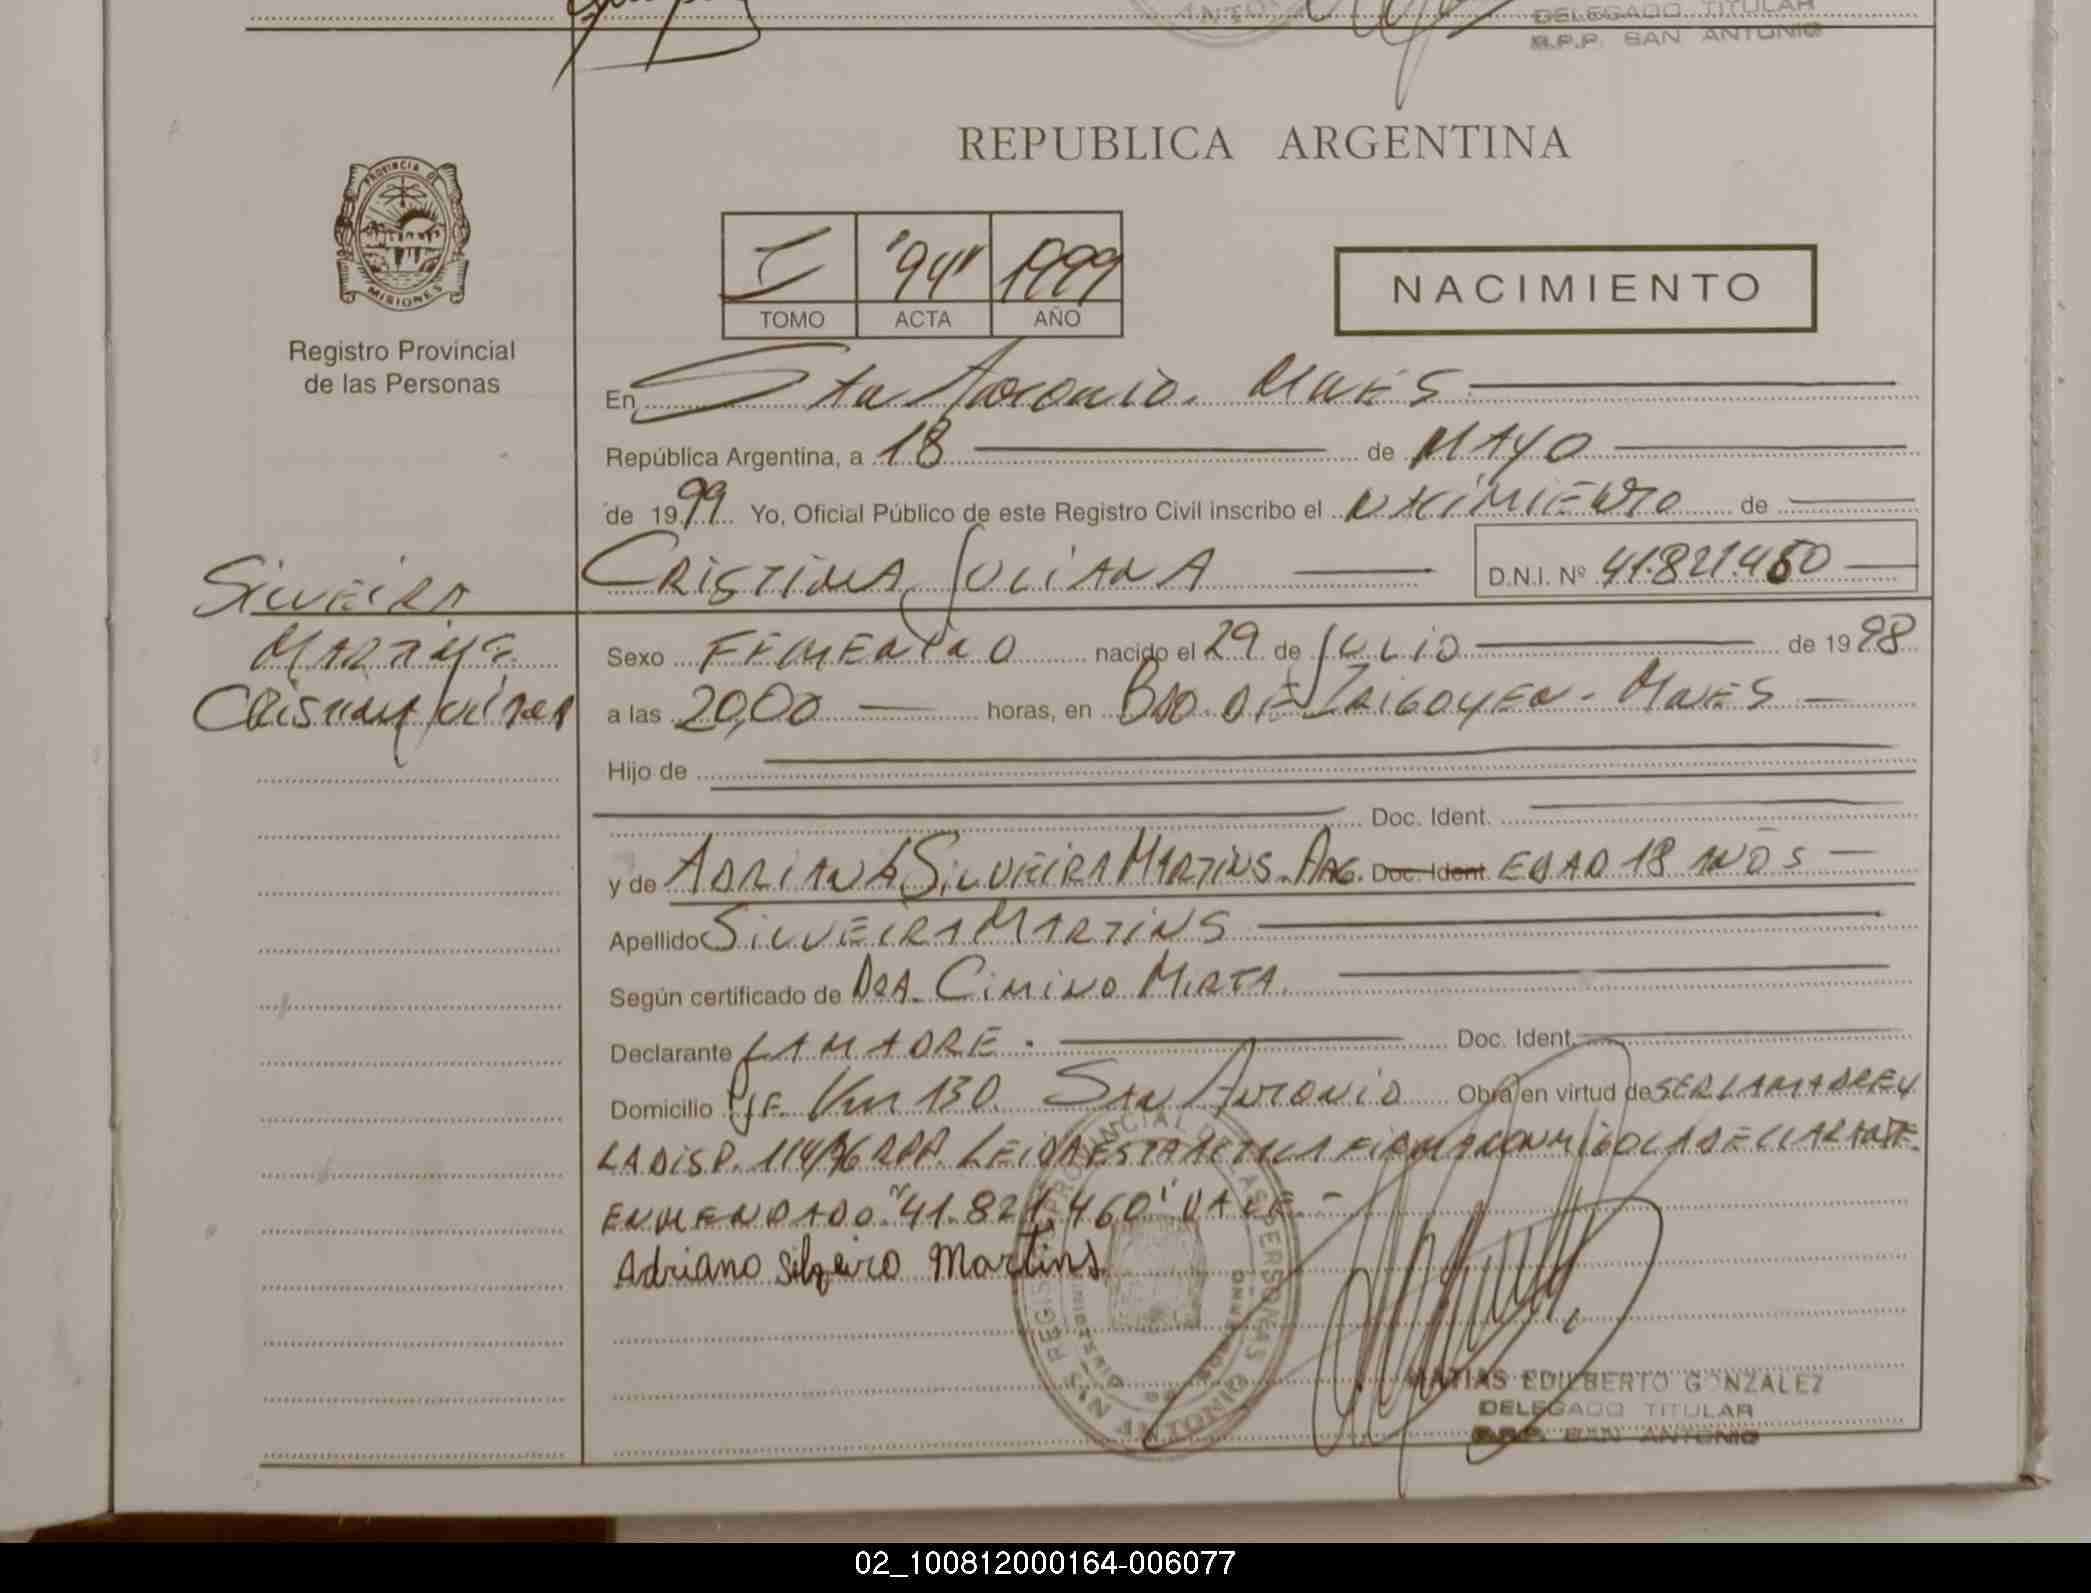 DELEGADO TITULAR
R.P.P. SAN ANTONIO
REPUBLICA ARGENTINA
PROVINCIA DE
MISIONES
I "94" 1999
TOMO ACTA AÑO
NACIMIENTO
Registro Provincial
de las Personas
En San Antonio. Mnes
República Argentina, a 18 de MAYO
de 1999 Yo, Oficial Público de este Registro Civil inscribo el NACIMIENTO de
CRISTINA JULIANA D.N.I. Nº 41.821.460
SILVEIRA
MARTINS
CRISTINA JULIANA
Sexo FEMENINO nacido el 29 de JULIO de 1998
a las 20,00 horas, en BDO. DE IRIGOYEN - MNES
Hijo de
Doc. Ident.
y de ADRIANA SILVEIRA MARTINS. ARG. Doc. Ident. EDAD 18 AÑOS
Apellido SILVEIRA MARTINS
Según certificado de DRA. CIMINO MIRTA.
Declarante LA MADRE. Doc. Ident.
Domicilio Km 130 SAN ANTONIO Obra en virtud de SER LA MADRE Y
LA DISP. 114/96 RPP. LEIDA ESTA ACTA LA FIRMA CONMIGO LA DECLARANTE.
ENMENDADO: "41.821.460" VALE. -
Adriano Silveiro Martins
MATIAS EDILBERTO GONZALEZ
DELEGADO TITULAR
R.P.P. SAN ANTONIO
02_100812000164-006077